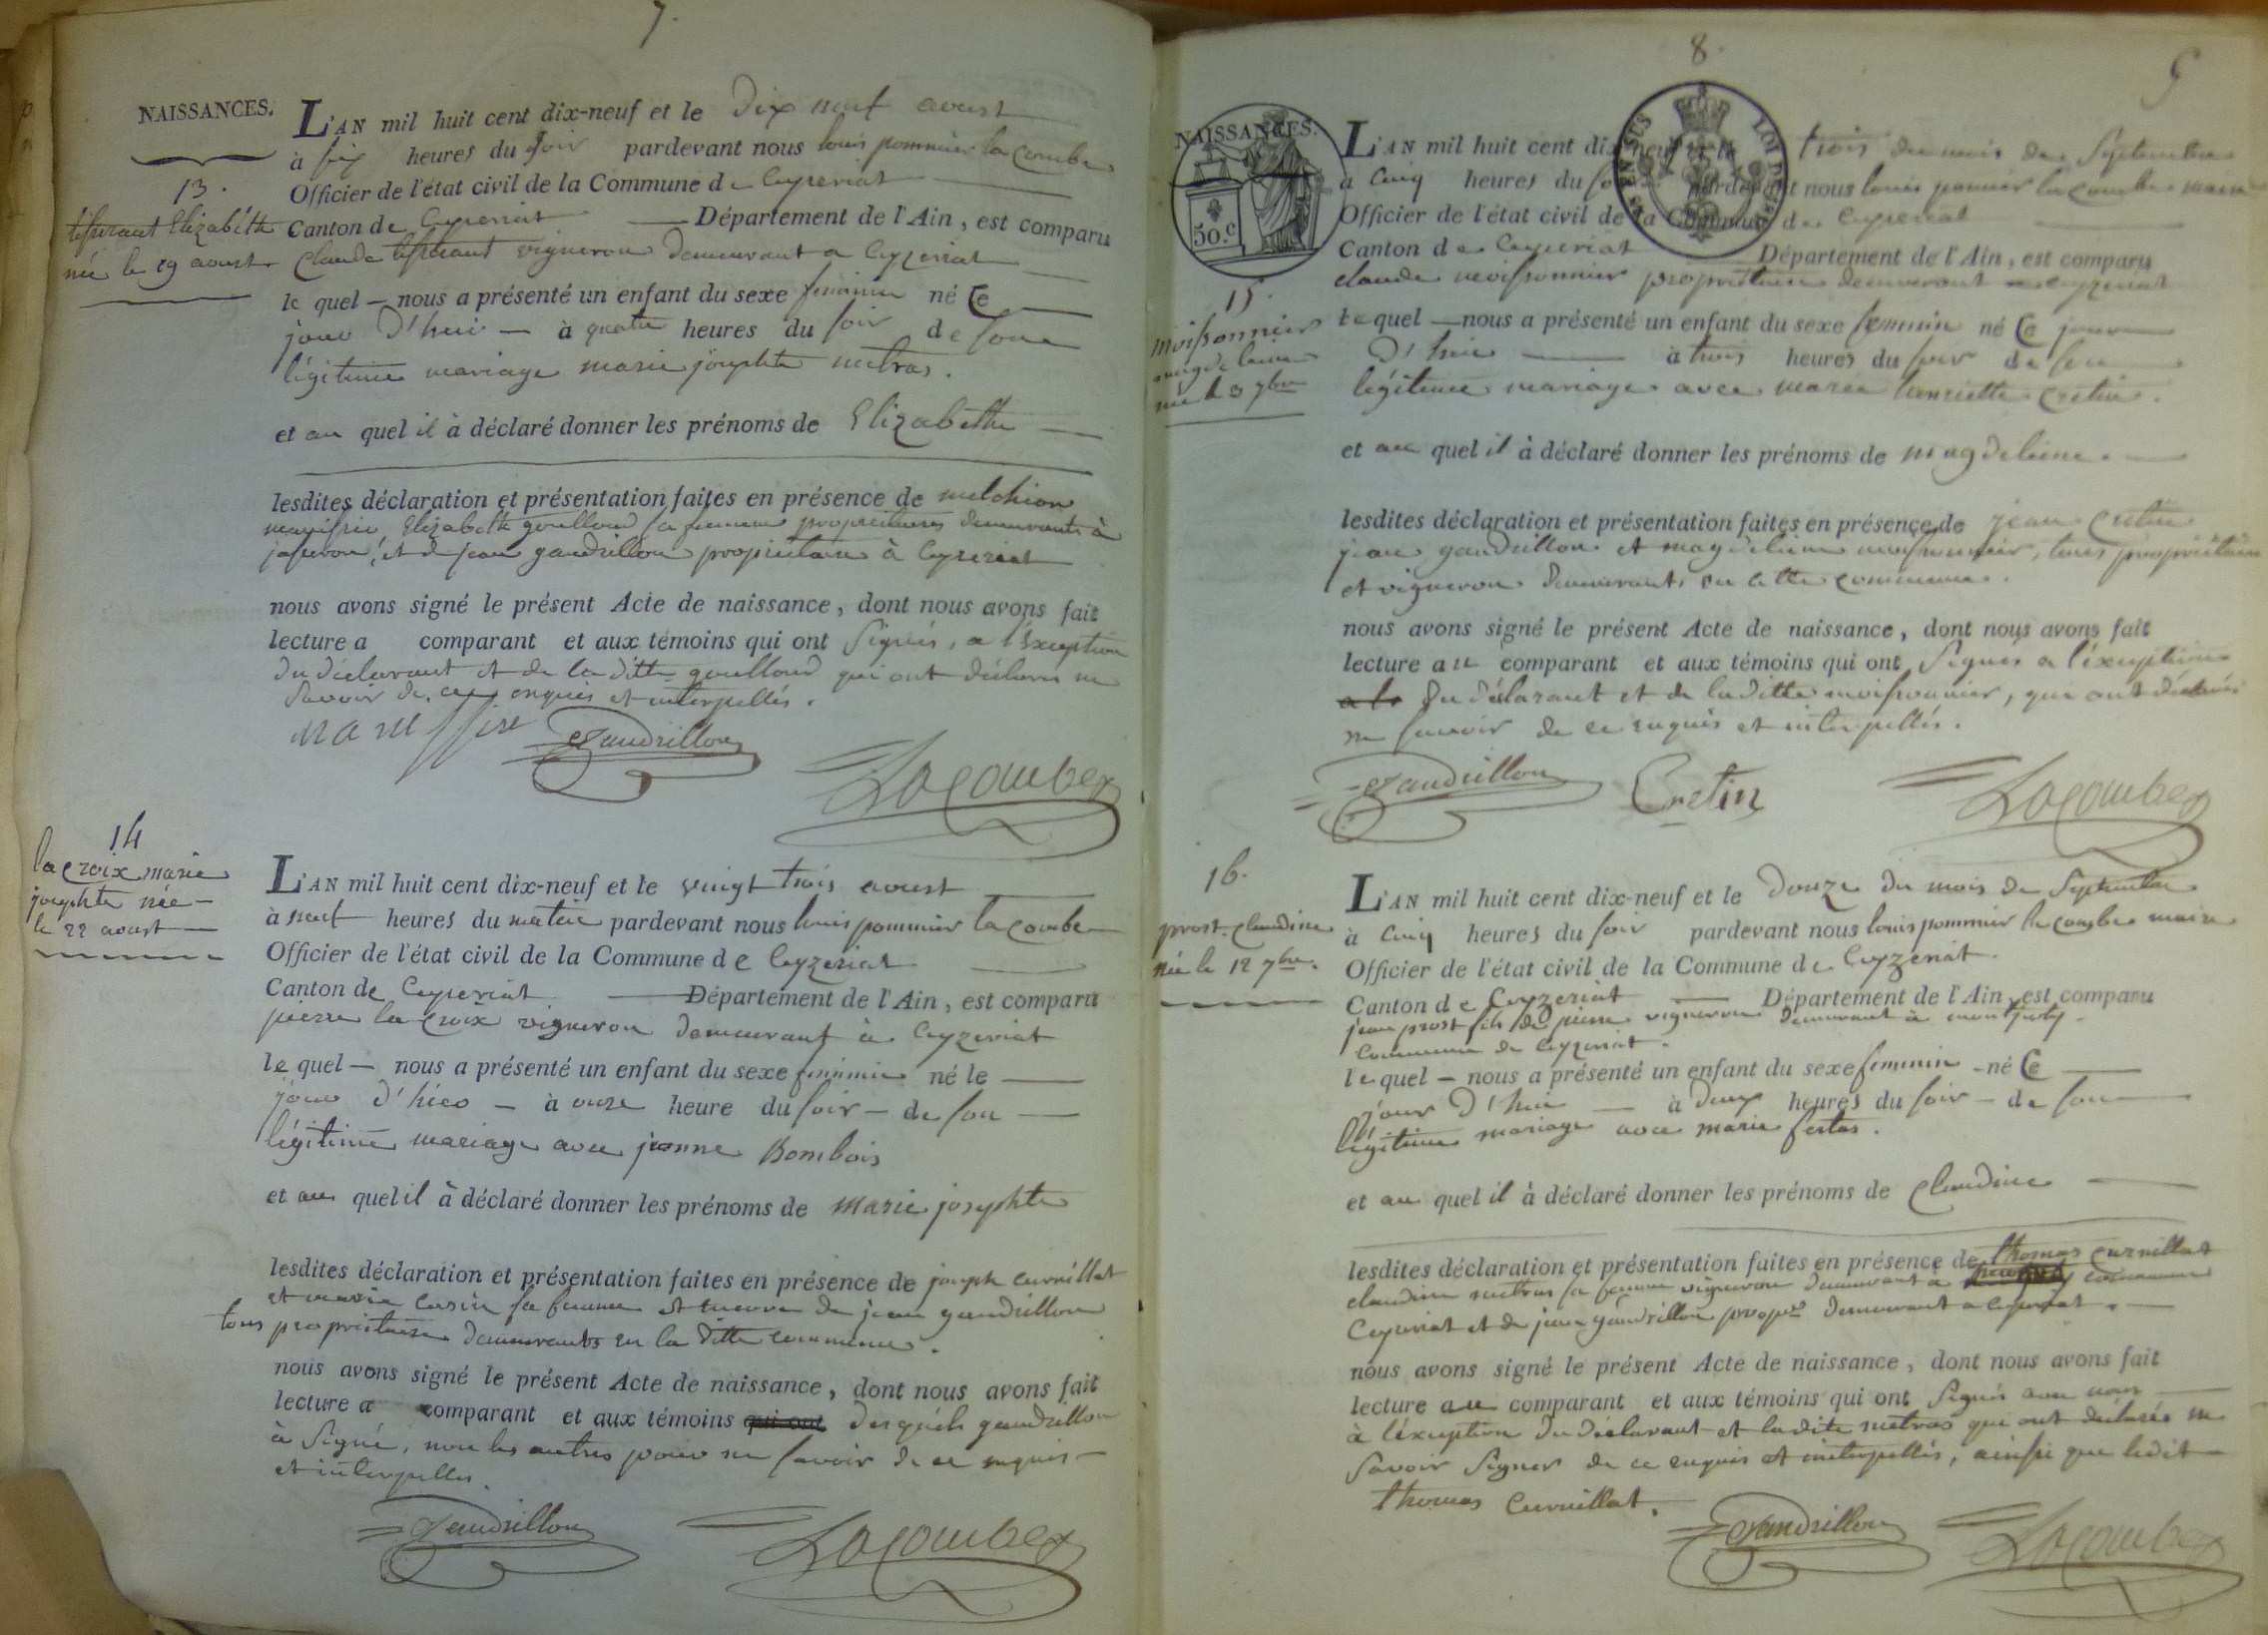 7.
NAISSANCES.
13.
Elizabeth
née le 19 aoust
L'AN mil huit cent dix-neuf et le Dix neuf aoust
à six heures du soir pardevant nous louis pommier la combe
Officier de l'état civil de la Commune de Ceyzeriat
Canton de Ceyzeriat Département de l'Ain, est comparu
Claude vigneron demeurant a Ceyzeriat
le quel nous a présenté un enfant du sexe feminin né Ce
jour d'hui à quatre heures du soir de son
légitime mariage marie josephte metras.
et au quel il à déclaré donner les prénoms de Elizabeth
lesdites déclaration et présentation faites en présence de melchion
Elizabeth goulloud sa femme propriétaires demeurants à
jasseron, et de jean gaudrillon propriétaire à Ceyzeriat
nous avons signé le présent Acte de naissance, dont nous avons fait
lecture a comparant et aux témoins qui ont Signés, a l'exception
du déclarant et de la ditte goulloud qui ont déclarés ne
Savoir de ce enquis et interpellés.
Gaudrillon
Lacombe
14
la Croix marie
josephte née
le 22 aoust
L'AN mil huit cent dix-neuf et le vingt trois aoust
à neuf heures du matin pardevant nous louis pommier la combe
Officier de l'état civil de la Commune de Ceyzeriat
Canton de Ceyzeriat Département de l'Ain, est comparu
pierre la Croix vigneron demeurant à Ceyzeriat
le quel nous a présenté un enfant du sexe feminin né le
jour d'hier à onze heure du soir de son
légitime mariage avec jeanne Bombois
et au quel il à déclaré donner les prénoms de marie josephte
lesdites déclaration et présentation faites en présence de joseph curnillat
et marie sa femme et encore de jean gaudrillon
tous propriétaires demeurants en la ditte commune.
nous avons signé le présent Acte de naissance, dont nous avons fait
lecture a comparant et aux témoins qui ont desquels gaudrillon
à Signé, non les autres pour ne savoir de ce enquis
et interpellés.
Gaudrillon
Lacombe
8.
5
NAISSANCES.
50.c
EN SUS
LOI DU
15.
moissonnier
magdelaine
née le 3 7bre
L'AN mil huit cent dix-neuf et le trois du mois de Septembre
à Cinq heures du soir pardevant nous louis pommier la combe maire
Officier de l'état civil de la Commune de Ceyzeriat
Canton de Ceyzeriat Département de l'Ain, est comparu
claude moissonnier propriétaire demeurant a Ceyzeriat
le quel nous a présenté un enfant du sexe feminin né Ce jour
d'hui à trois heures du soir de son
légitime mariage avec marie henriette Cretin.
et au quel il à déclaré donner les prénoms de magdelaine.
lesdites déclaration et présentation faites en présence de jean Cretin
jean gaudrillon et magdelaine moissonnier, tous propriétaires
et vigneron demeurants en cette commune.
nous avons signé le présent Acte de naissance, dont nous avons fait
lecture au comparant et aux témoins qui ont Signés a l'éxception
a la du déclarant et de laditte moissonnier, qui ont déclarés
ne savoir de ce enquis et interpellés.
Gaudrillon
Cretin
Lacombe
16.
prost. Claudine
née le 12 7bre.
L'AN mil huit cent dix-neuf et le Douze du mois de Septembre
à Cinq heures du soir pardevant nous louis pommier la combe maire
Officier de l'état civil de la Commune de Ceyzeriat.
Canton de Ceyzeriat Département de l'Ain, est comparu
jean prost fils de pierre vigneron demeurant à
Commune de Ceyzeriat.
le quel nous a présenté un enfant du sexe feminin né Ce
jour d'hui à deux heures du soir de son
légitime mariage avec marie
et au quel il à déclaré donner les prénoms de Claudine
lesdites déclaration et présentation faites en présence de thomas curnillat
claudine metras sa femme vigneron demeurant à commune
Ceyzeriat et de jean gaudrillon propre demeurant a Ceyzeriat.
nous avons signé le présent Acte de naissance, dont nous avons fait
lecture au comparant et aux témoins qui ont Signés avec nous
à l'éxception du déclarant et ladite metras qui ont déclarés ne
Savoir Signer de ce enquis et interpellés, ainsi que ledit
thomas Curnillat.
Gaudrillon
Lacombe